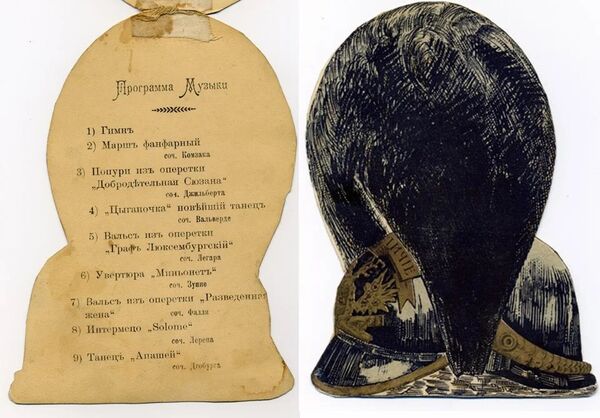 Программа Музыки
1) Гимнъ
2) Маршъ фанфарный
соч. Комзака
3) Попури изъ оперетки
„Добродѣтельная Сюзана“
соч. Джильберта
4) „Цыганочка“ новѣйшій танецъ
соч. Вальверде
5) Вальсъ изъ оперетки
„Графъ Люксембургскій“
соч. Легара
6) Увертюра „Миньонетъ“
соч. Зуппе
7) Вальсъ изъ оперетки „Разведенная
жена“
соч. Фалля
8) Интермецо „Solome“
соч. Лорена
9) Танецъ „Апашей“
соч.